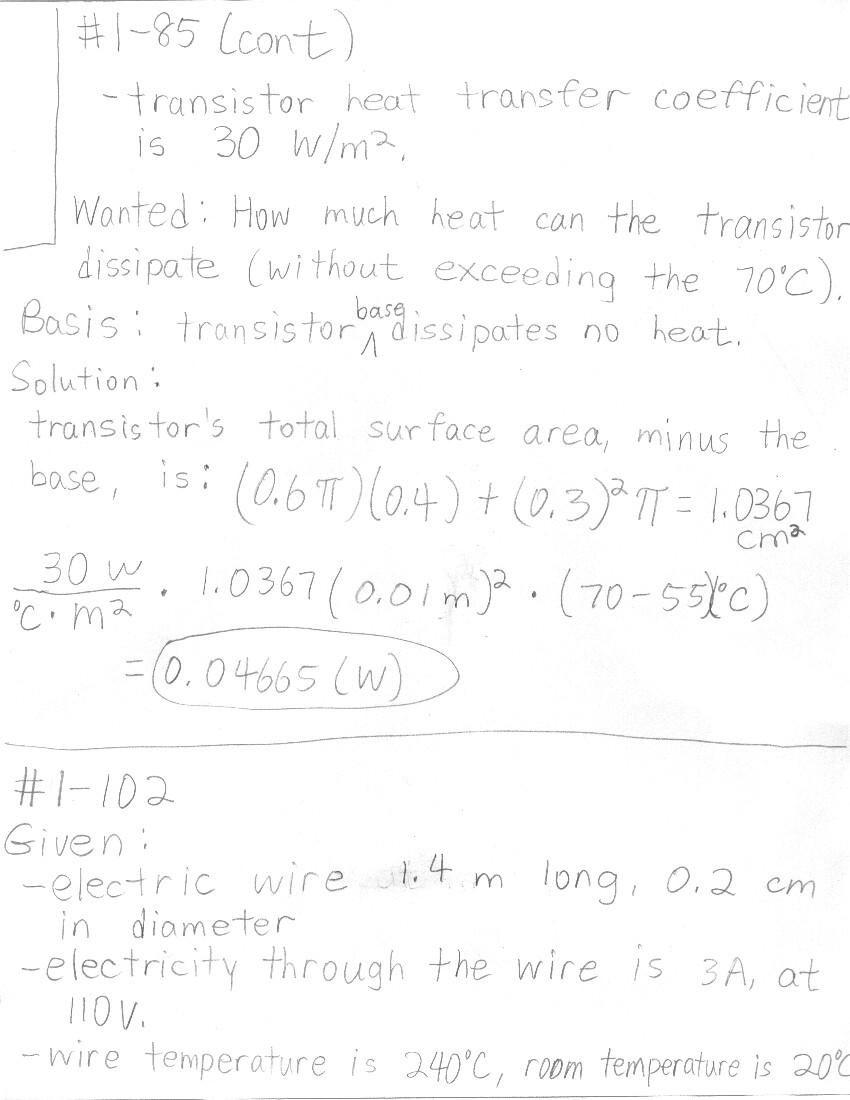 #1-85 (cont)
-transistor heat transfer coefficient
is 30 W/m².
Wanted: How much heat can the transistor
dissipate (without exceeding the 70°C).
Basis: transistor base dissipates no heat.
Solution:
transistor's total surface area, minus the
base, is: (0.6π)(0.4) + (0.3)²π = 1.0367
cm²
30 W/°C·m² · 1.0367(0.01m)² · (70-55)(°C)
= 0.04665 (W)
#1-102
Given:
-electric wire 1.4 m long, 0.2 cm
in diameter
-electricity through the wire is 3A, at
110V.
-wire temperature is 240°C, room temperature is 20°C